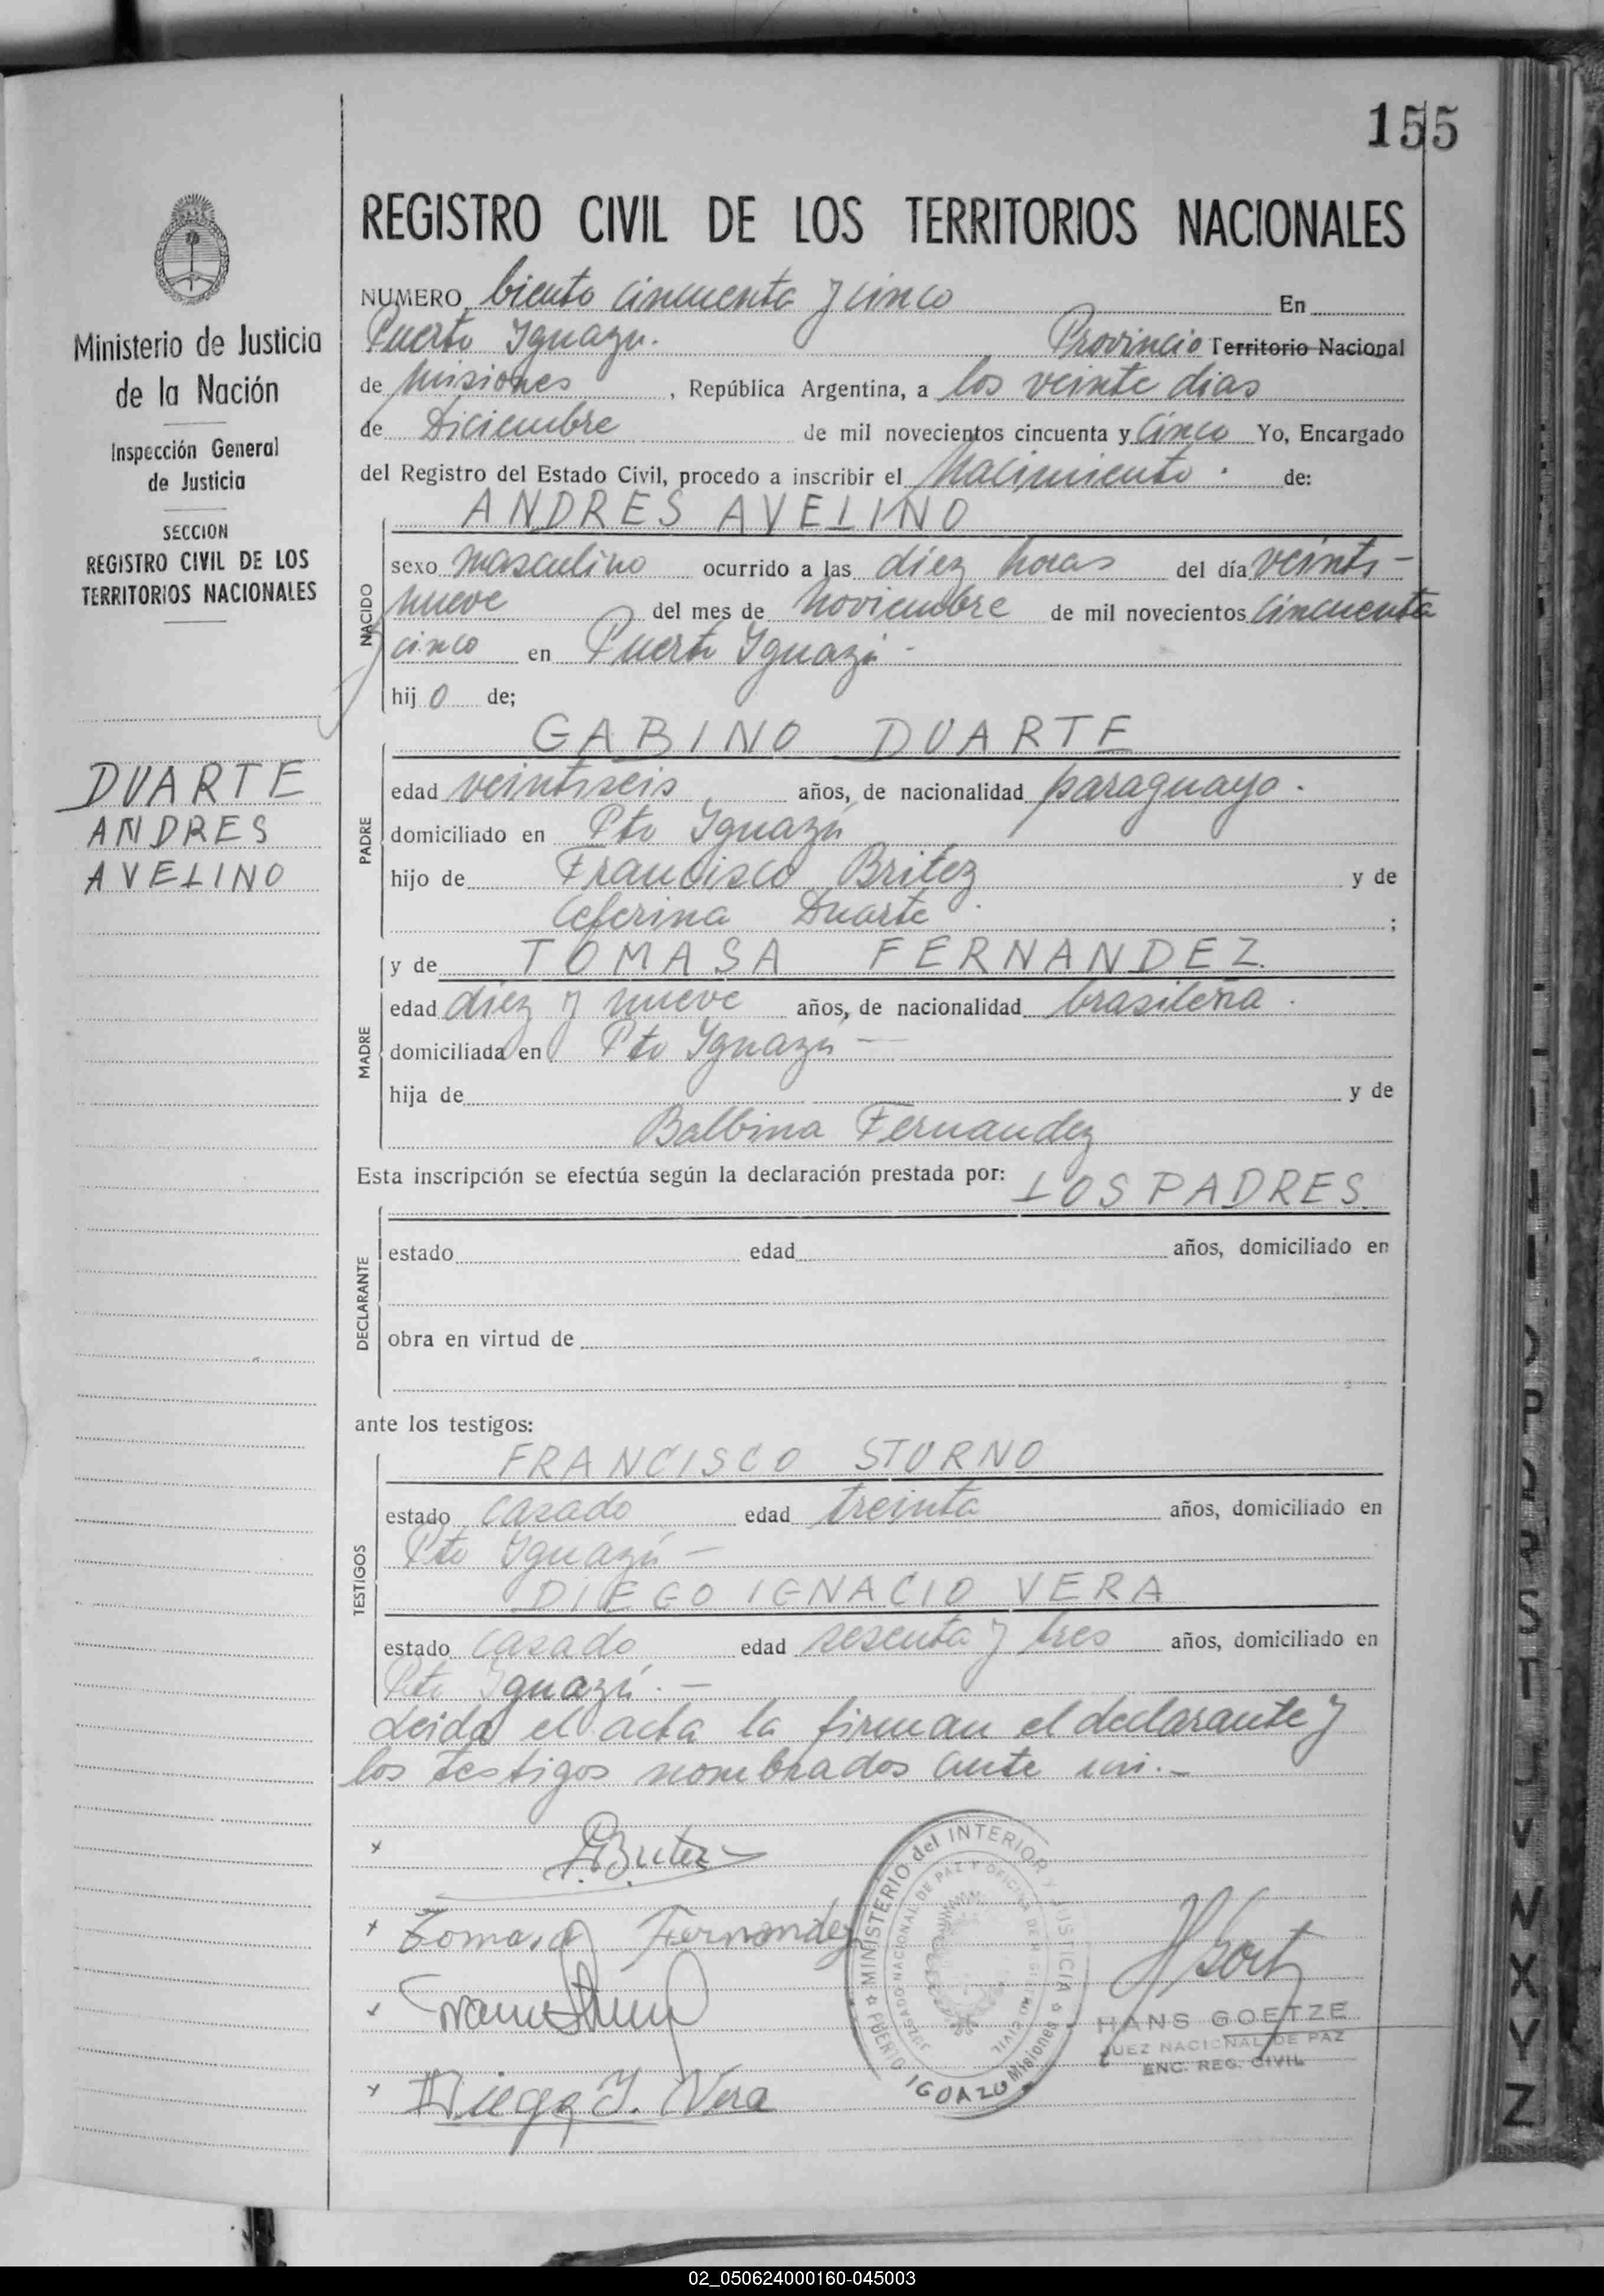 155
REGISTRO CIVIL DE LOS TERRITORIOS NACIONALES
Ministerio de Justicia
de la Nación
Inspección General
de Justicia
SECCION
REGISTRO CIVIL DE LOS
TERRITORIOS NACIONALES
DUARTE
ANDRES
AVELINO
NUMERO Ciento cincuenta y cinco En
Puerto Iguazu. Provincia Territorio Nacional
de Misiones, República Argentina, a los veinte dias
de Diciembre de mil novecientos cincuenta y Cinco Yo, Encargado
del Registro del Estado Civil, procedo a inscribir el Nacimiento. de:
ANDRES AVELINO
NACIDO
sexo masculino ocurrido a las diez horas del día veinti-
nueve del mes de Noviembre de mil novecientos cincuenta
y cinco en Puerto Iguazú -
hijo de;
GABINO DUARTE
PADRE
edad veintiseis años, de nacionalidad paraguayo.
domiciliado en Pto Iguazú
hijo de Francisco Britez y de
Ceferina Duarte. ;
y de TOMASA FERNANDEZ
MADRE
edad diez y nueve años, de nacionalidad brasileña.
domiciliada en Pto Iguazú -
hija de y de
Balbina Fernandez
Esta inscripción se efectúa según la declaración prestada por:
LOS PADRES
DECLARANTE
estado edad años, domiciliado en
obra en virtud de
ante los testigos:
FRANCISCO STORNO
TESTIGOS
estado casado edad treinta años, domiciliado en
Pto Iguazú -
DIEGO IGNACIO VERA
estado casado edad sesenta y tres años, domiciliado en
Pto Iguazú. -
Leida el acta la firman el declarante y
los testigos nombrados ante mi. -
x
x Tomasa Fernandez
x
x Diego I. Vera
MINISTERIO del INTERIOR y JUSTICIA
JUZGADO NACIONAL DE PAZ Y OFICINA DE REGISTRO CIVIL
PUERTO IGUAZU Misiones
HANS GOETZE
JUEZ NACIONAL DE PAZ
ENC. REG. CIVIL
V
W
X
Y
Z
02_050624000160-045003